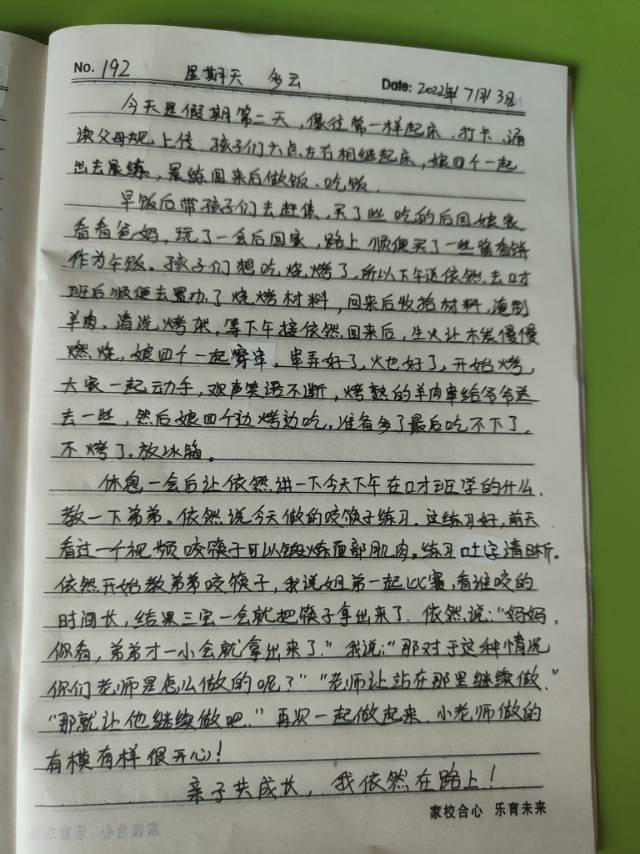 No. 192 星期天 多云 Date: 2022年7月3日
今天是假期第二天,像往常一样起床、打卡、诵
读父母规上传 孩子们六点左右相继起床,娘四个一起
出去晨练,晨练回来后做饭、吃饭。
早饭后带孩子们去赶集,买了些吃的后回娘家
看看爸妈,玩了一会后回家,路上顺便买了一些酱香饼
作为午饭。孩子们想吃烧烤了,所以下午送依然去口才
班后顺便去置办了烧烤材料,回来后收拾材料,腌制
羊肉,清洗烤架,等下午接依然回来后,生火让木炭慢慢
燃烧,娘四个一起穿串,串弄好了,火也好了,开始烤,
大家一起动手,欢声笑语不断,烤熟的羊肉串给爷爷送
去一些,然后娘四个边烤边吃,准备多了最后吃不下了,
不烤了,放冰箱。
休息一会后让依然讲一下今天下午在口才班学的什么,
教一下弟弟。依然说今天做的咬筷子练习,这练习好,前天
看过一个视频咬筷子可以锻炼面部肌肉。练习吐字清晰。
依然开始教弟弟咬筷子,我说姐弟一起比赛,看谁咬的
时间长,结果三宝一会就把筷子拿出来了,依然说:“妈妈,
你看,弟弟才一小会就拿出来了。”我说:“那对于这种情况
你们老师是怎么做的呢?”“老师让站在那里继续做。”
“那就让他继续做吧。”再次一起做起来,小老师做的
有模有样很开心!
亲子共成长,我依然在路上!
家校合心 乐育未来